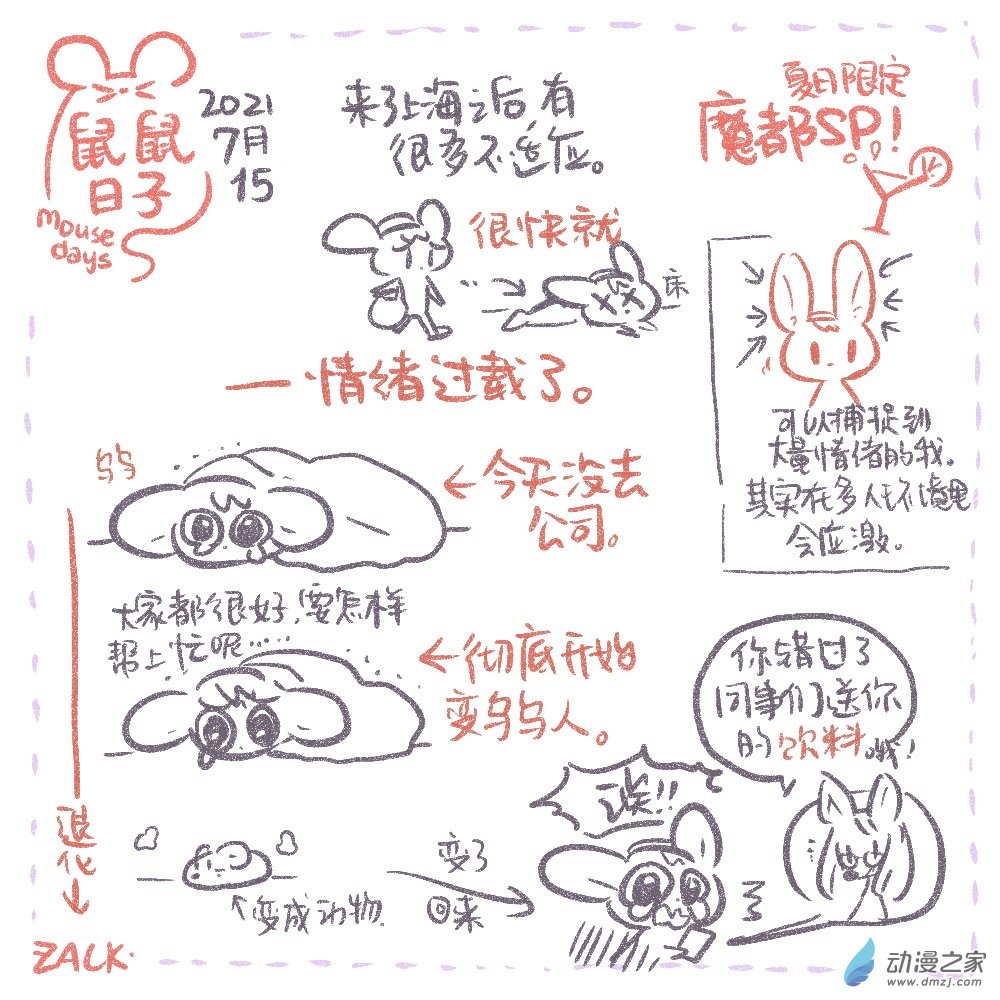 鼠鼠
日子
mouse
days
2021
7月
15
来了上海之后,有
很多不适应。
夏日限定
魔都SP!
很快就
床
一情绪过载了。
可以捕捉到
大量情绪的我。
其实在多人环境里
会应激。
呜呜
←今天没去
公司。
大家都很好,要怎样
帮上忙呢……
←彻底开始
变呜呜人。
你错过了
同事们送你
的饮料哦!
诶!!
退化
变成动物.
变了
回来
ZALK.
动漫之家
www.dmzj.com